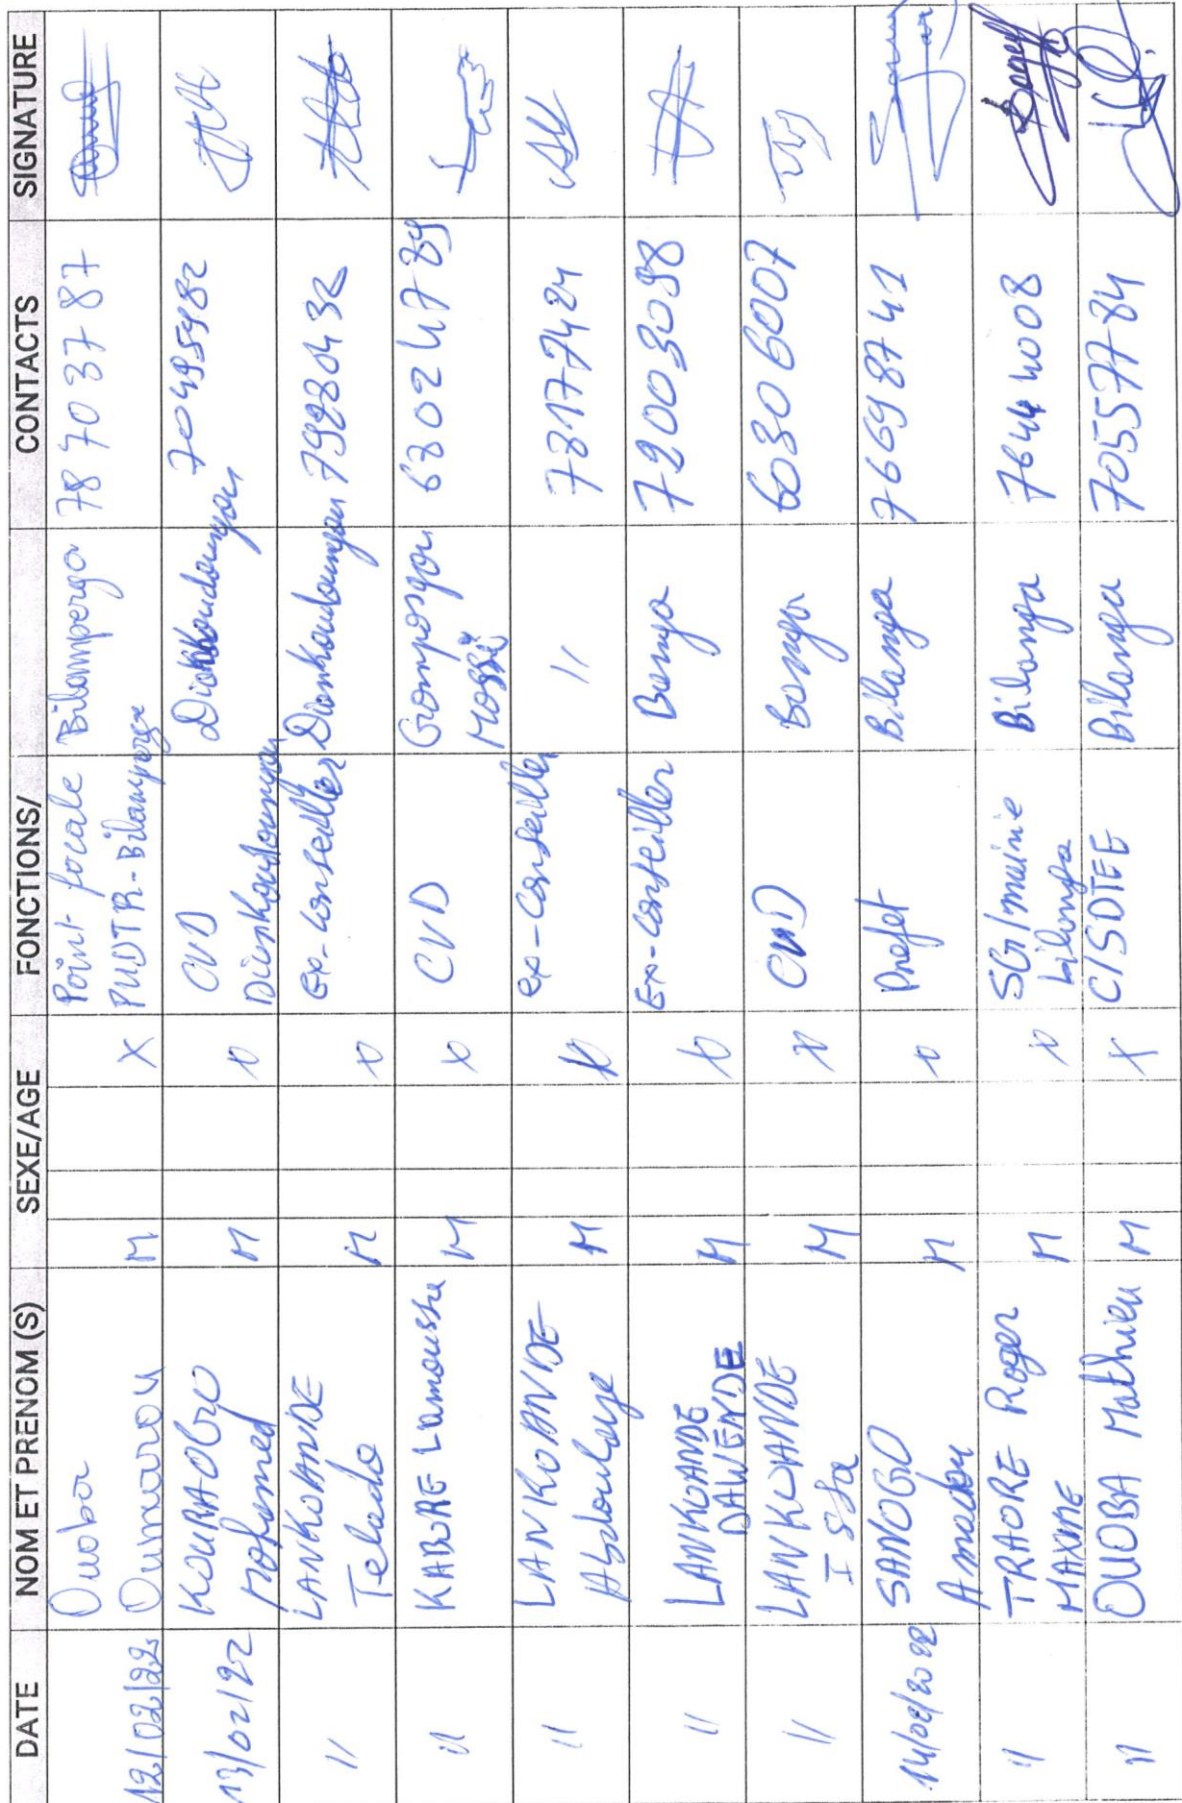 DATE NOM ET PRENOM (S) SEXE/AGE FONCTIONS/ CONTACTS SIGNATURE
12/02/22 Ouoba Oumarou M X Point focale PUDTR-Bilamperga Bilamperga 78 70 37 87
13/02/22 KOURAOGO Mohamed M x CVD Diankoudougou Diankoudougou 70495482
// LANKOANDE Telado M x Ex-conseiller Diankoudougou 79280432
// KABORE Lamoussa M x CVD Gomposgou Mossi 68024789
// LANKOANDE Abdoulaye M x ex-Conseiller // 78177424
// LANKOANDE DAWENDE M x Ex-conseiller Banga 72003098
// LANKOANDE Issa M x CVD Banga 60306007
14/02/2022 SANOGO Amadou M x Prefet Bilanga 76698741
// TRAORE Roger MAXIME M x SG/mairie bilanga Bilanga 76444008
// OUOBA Mathieu M X C/SDTEE Bilanga 70557784